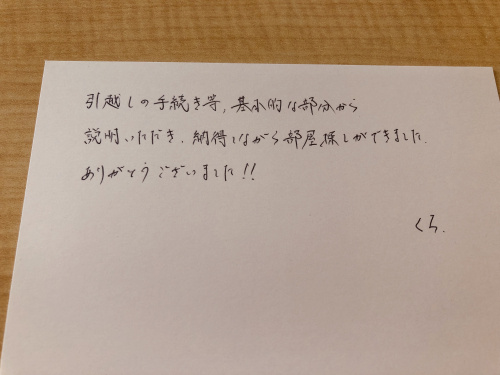 引越しの手続き等、基本的な部分から
説明いただき、納得しながら部屋探しができました.
ありがとうございました!!
くろ.